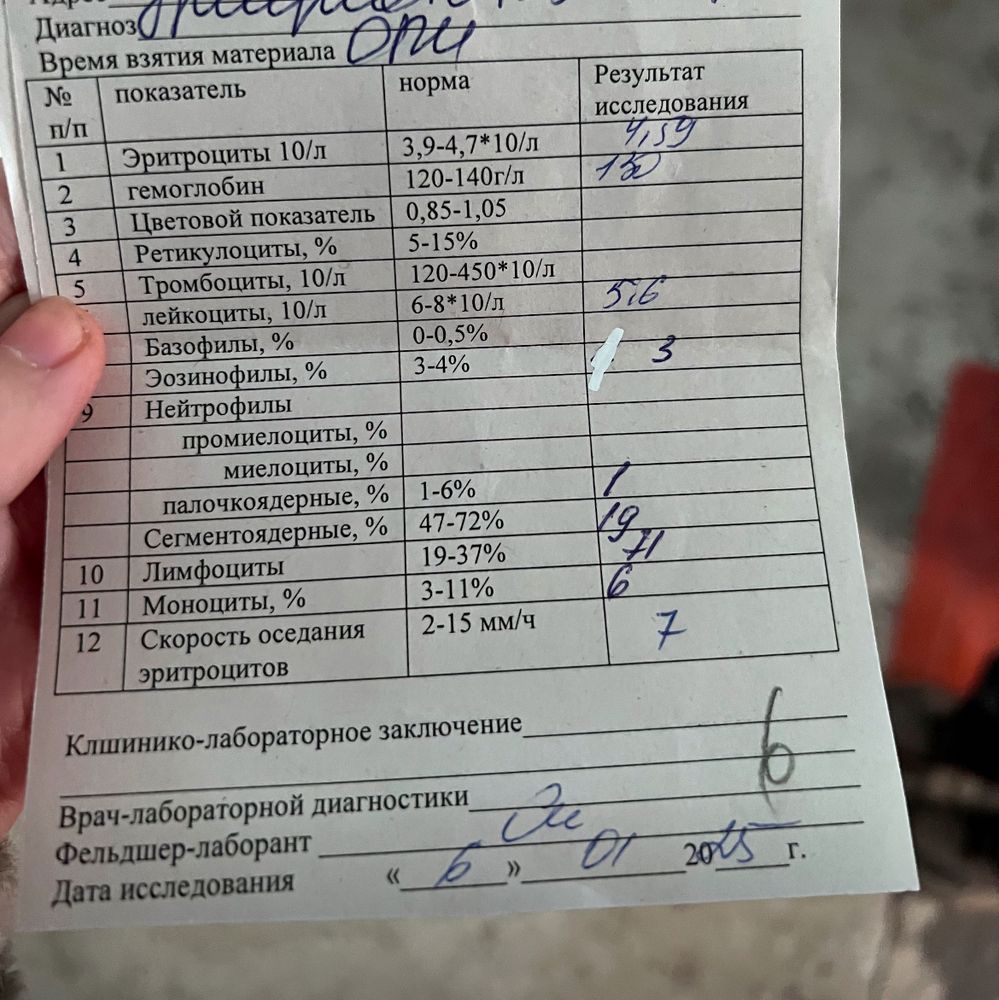 Адрес
Диагноз ОРИ
Время взятия материала
№ п/п показатель норма Результат исследования
1 Эритроциты 10/л 3,9-4,7*10/л 4,59
2 гемоглобин 120-140г/л 130
3 Цветовой показатель 0,85-1,05
4 Ретикулоциты, % 5-15%
5 Тромбоциты, 10/л 120-450*10/л
лейкоциты, 10/л 6-8*10/л 5,6
Базофилы, % 0-0,5%
Эозинофилы, % 3-4% 3
9 Нейтрофилы
промиелоциты, %
миелоциты, %
палочкоядерные, % 1-6% 1
Сегментоядерные, % 47-72% 19
10 Лимфоциты 19-37% 71
11 Моноциты, % 3-11% 6
12 Скорость оседания эритроцитов 2-15 мм/ч 7
Клшинико-лабораторное заключение
Врач-лабораторной диагностики
Фельдшер-лаборант
Дата исследования «6» 01 2025 г.